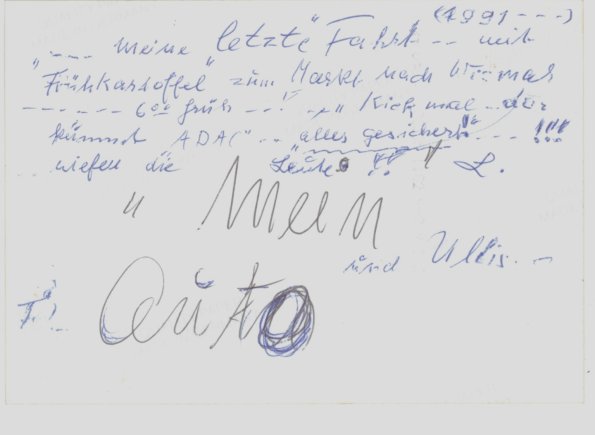 (1991 - - -)
"- - - - meine "letzte" Fahrt - - mit
"Frühkartoffel" zum Markt nach Wismar
- - - - - - - 6 00 früh - - - " - "Kick mal - der
kümmt ADAC" - - "alles gesichert" - - - !!!
riefen die Leute !! L.
" Mein
und Ullis. -
Auto